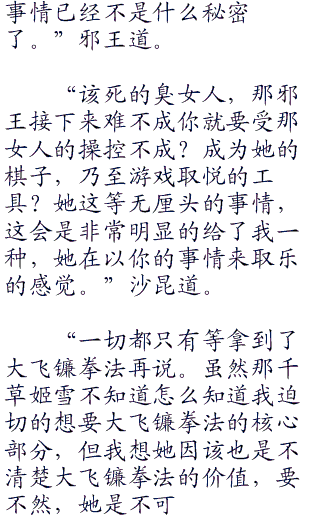 事情已经不是什么秘密
了。”邪王道。
“该死的臭女人，那邪
王接下来难不成你就要受那
女人的操控不成？成为她的
棋子，乃至游戏取悦的工
具？她这等无厘头的事情，
这会是非常明显的给了我一
种，她在以你的事情来取乐
的感觉。”沙昆道。
“一切都只有等拿到了
大飞镰拳法再说。虽然那千
草姬雪不知道怎么知道我迫
切的想要大飞镰拳法的核心
部分，但我想她因该也是不
清楚大飞镰拳法的价值，要
不然，她是不可